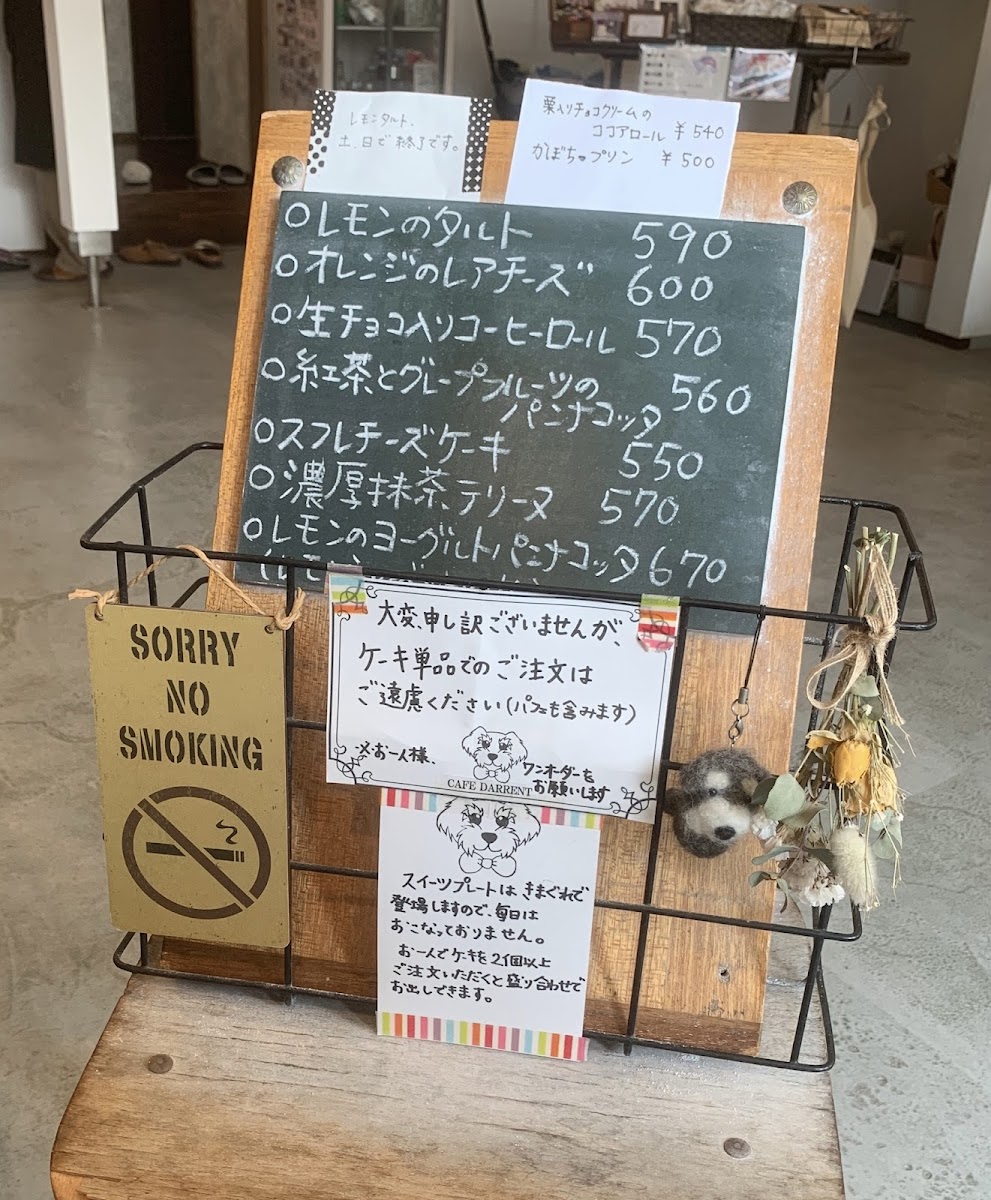 レモンタルト、
土、日で終了です。
栗入りチョコクリームの
ココアロール ¥540
かぼちゃプリン ¥500
○レモンのタルト 590
○オレンジのレアチーズ 600
○生チョコ入りコーヒーロール 570
○紅茶とグレープフルーツの
パンナコッタ 560
○スフレチーズケーキ 550
○濃厚抹茶テリーヌ 570
○レモンのヨーグルトパンナコッタ 670
大変、申し訳ございませんが、
ケーキ単品でのご注文は
ご遠慮ください(パフェも含みます)
※お一人様、
ワンオーダーを
お願いします
CAFE DARRENT
SORRY
NO
SMOKING
スイーツプレートはきまぐれで
登場しますので、毎日は
おこなっておりません。
お一人でケーキを2個以上
ご注文いただくと盛り合わせで
お出しできます。